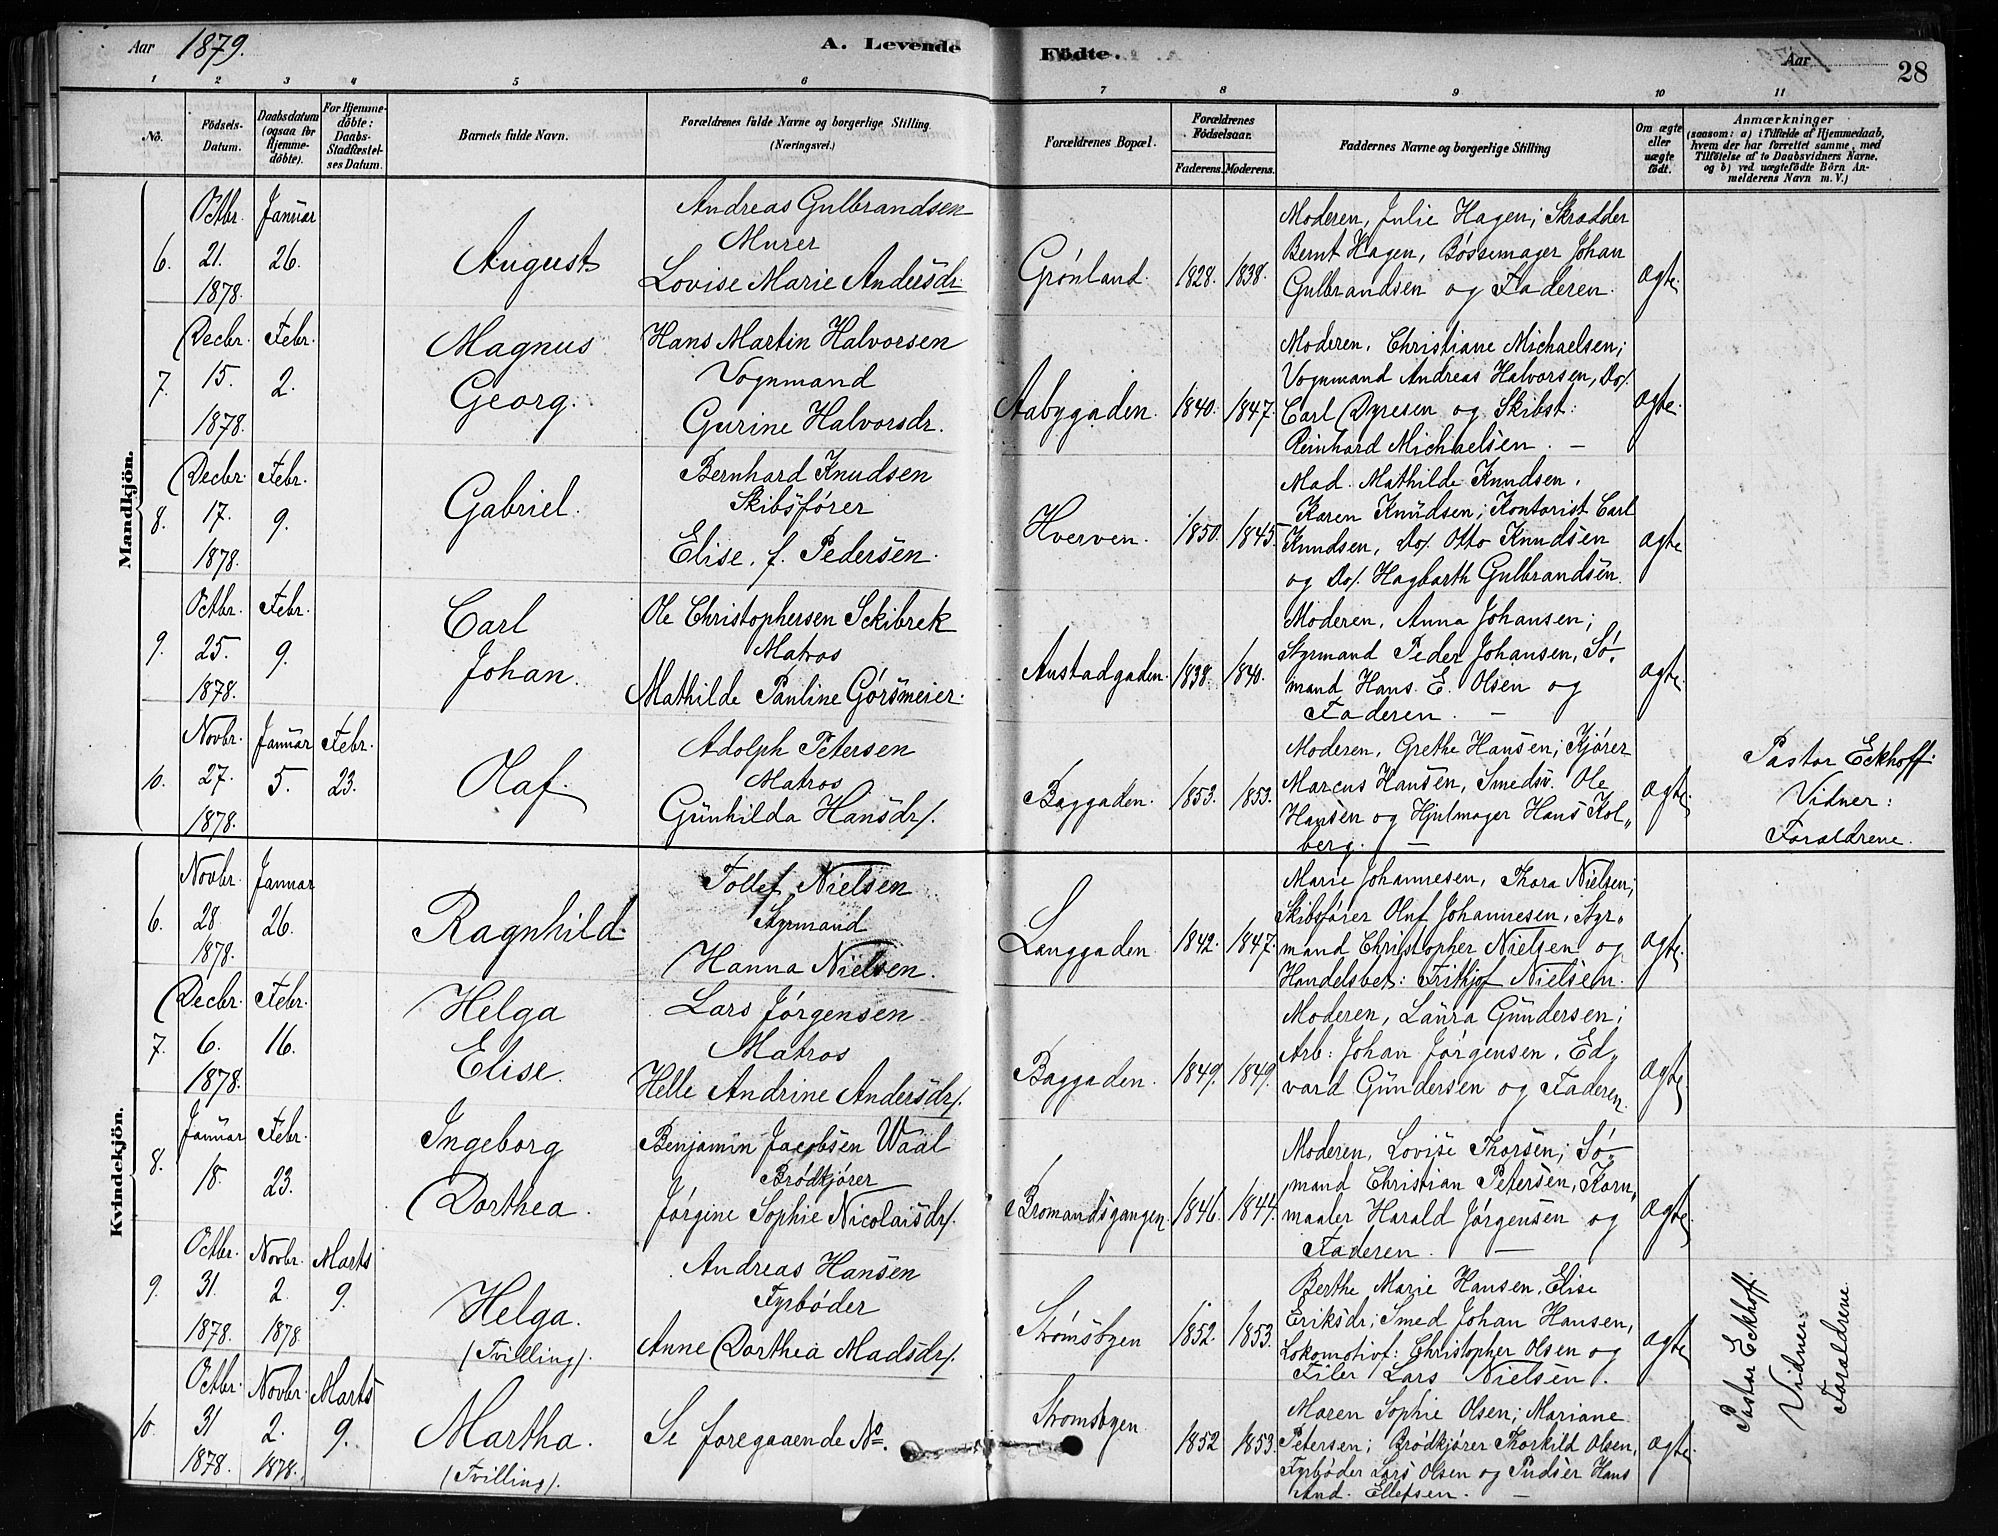 Aar 1879.
A. Levende Födte.
Aar
28
1 2 3 4 5 6 7 8 9 10 11
No.
Födsels-Datum.
Daabsdatum (ogsaa for Hjemmedöbte).
For Hjemmedöbte: Daabs-Stadfæstelses Datum.
Barnets fulde Navn.
Forældrenes fulde Navne og borgerlige Stilling (Næringsvei.)
Forældrenes Bopæl.
Forældrenes Födselsaar.
Faderens. Moderens.
Faddernes Navne og borgerlige Stilling
Om ægte eller uægte födt.
Anmærkninger
(saasom: a) i Tilfælde af Hjemmedaab, hvem der har forrettet samme, med Tilföielse af to Daabsvidners Navne, og b) ved uægtefödte Börn Anmelderens Navn m. V.)
Mandkjön.
6.
Octbr. 21. 1878.
Januar 26.
August
Andreas Gulbrandsen
Murer
Lovise Marie Andersdr
Grønland.
1828. 1838.
Moderen, Julie Hagen; Skrædder
Bernt Hagen, Bøssemager Johan
Gulbrandsen og Faderen.
ægte.
7.
Decbr. 15. 1878.
Febr. 2.
Magnus
Georg.
Hans Martin Halvorsen
Vognmand
Gurine Halvorsdr.
Aabygaden.
1840. 1847.
Moderen, Christiane Michaelsen;
Vognmand Andreas Halvorsen, Do/.
Carl Dyresen og Skibst:
Reinhard Michaelsen. —
ægte.
8.
Decbr. 17. 1878.
Febr. 9.
Gabriel.
Bernhard Knudsen
Skibsfører
Elise, f. Pedersen.
Hverven.
1850. 1845.
Mad. Mathilde Knudsen,
Karen Knudsen; Kontorist Carl
Knudsen, Do/. Otto Knudsen
og Do/. Hagbarth Gulbrandsen.
ægte
9.
Octbr. 25. 1878.
Febr. 9.
Carl
Johan.
Ole Christophersen Skibrek
Matros
Mathilde Pauline Görsmeier.
Anstadgaden.
1838. 1840.
Moderen, Anna Johansen;
Styrmand Peder Johansen, Sø-
mand Hans E. Olsen og
Faderen. —
ægte.
10.
Novbr. 27. 1878.
Januar 5.
Febr. 23.
Olaf.
Adolph Petersen
Matros
Gunhilda Hansdr/.
Baggaden.
1853. 1853.
Moderen, Grethe Hansen; Kjører
Marcus Hansen, Smedsv. Ole
Hansen og Hjulmager Hans Kol„
berg. —
ægte.
Pastor Eckhoff.
Vidner:
Forældrene.
Kvindekjön.
6.
Novbr. 28. 1878.
Januar 26.
Ragnhild.
Tollef Nielsen
Styrmand
Hanna Nielsen.
Langgaden.
1842. 1847.
Marie Johannesen, Thora Nielsen;
Skibsfører Oluf Johannesen, Styr„
mand Christopher Nielsen og
Handelsbet: Frithjof Nielsen.
ægte.
7.
Decbr. 6. 1878.
Febr. 16.
Helga
Elise.
Lars Jørgensen
Matros
Helle Andrine Andersdr/.
Baggaden.
1849. 1849.
Moderen, Laura Gundersen;
Arb: Johan Jørgensen, Ed„
vard Gundersen og Faderen.
ægte
8.
Januar 18.
Febr. 23.
Ingeborg
Dorthea.
Benjamin Jacobsen Waal
Brödkjører
Jørgine Sophie Nicolaisdr/.
Bromandsgangen
1846. 1844.
Moderen, Lovise Thorsen; Sø-
mand Christian Petersen, Korn„
maaler Harald Jørgensen og
Faderen. —
ægte.
9.
Octbr. 31. 1878.
Novbr. 2. 1878
Marts 9.
Helga.
(Tvilling).
Andreas Hansen
Fyrbøder
Anne Dorthea Madsdr/.
Strømsbyen
1852. 1853.
Berthe Marie Hansen, Elise
Eriksdr; Smed Johan Hansen,
Lokomotivf: Christopher Olsen og
Filer Lars Nielsen.
ægte
Pastor Eckhoff.
Vidner:
Forældrene
10.
Octbr. 31 1878.
Novbr. 2. 1878.
Marts 9.
Martha.
(Tvilling).
Se foregaaende No.
Strømsbyen
1852 1853.
Maren Sophie Olsen; Mariane
Petersen; Brödkjører Thorkild Olsen,
Fyrbøder Lars Olsen og Pudser Hans
And. Ellefsen. —
ægte